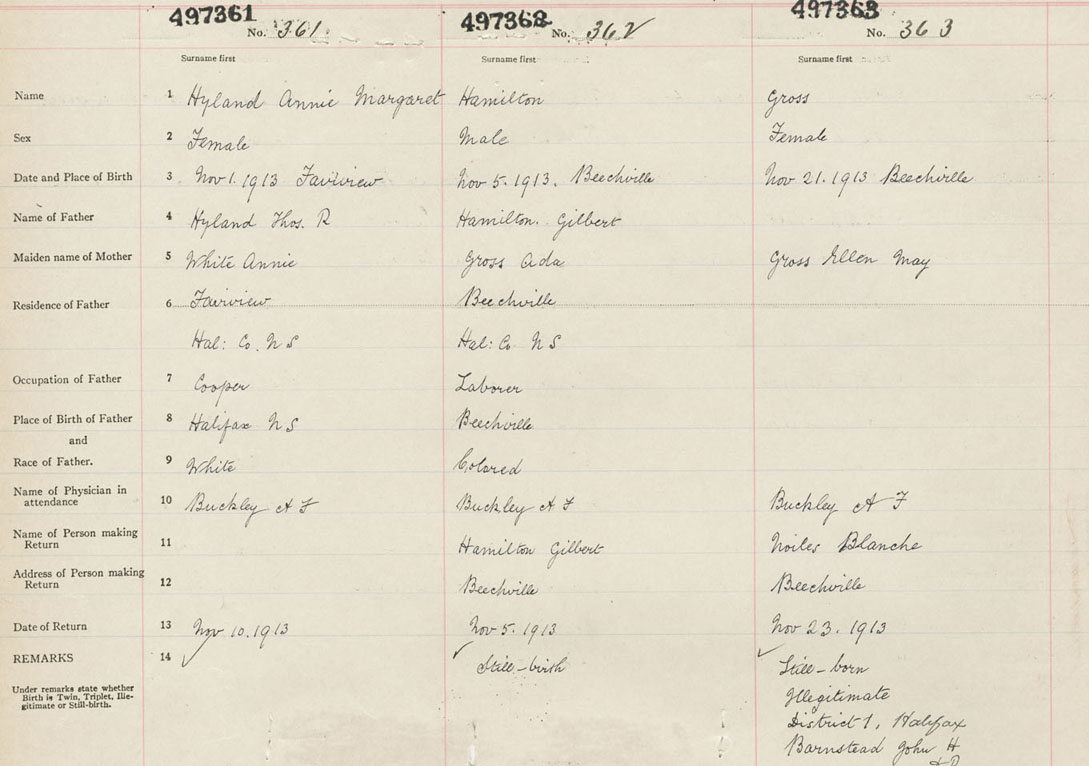 497361 497362 497363
No. 361 No. 362 No. 363
Surname first Surname first Surname first
Name 1 Hyland Annie Margaret Hamilton Gross
Sex 2 Female Male Female
Date and Place of Birth 3 Nov 1. 1913 Fairview Nov 5. 1913. Beechville Nov 21. 1913 Beechville
Name of Father 4 Hyland Thos. R Hamilton. Gilbert
Maiden name of Mother 5 White Annie Gross Ada Gross Ellen May
Residence of Father 6 Fairview Beechville
Hal: Co. N S Hal: Co N S
Occupation of Father 7 Cooper Laborer
Place of Birth of Father 8 Halifax N S Beechville
and
Race of Father. 9 White Colored
Name of Physician in
attendance 10 Buckley A F Buckley A F Buckley A F
Name of Person making
Return 11 Hamilton Gilbert Noiles Blanche
Address of Person making
Return 12 Beechville Beechville
Date of Return 13 Nov. 10. 1913 Nov 5. 1913 Nov 23. 1913
REMARKS 14 Still-birth Still-born
Under remarks state whether
Birth is Twin, Triplet, Ille-
gitimate or Still-birth.
Illegitimate
District 1, Halifax
Barnstead John H